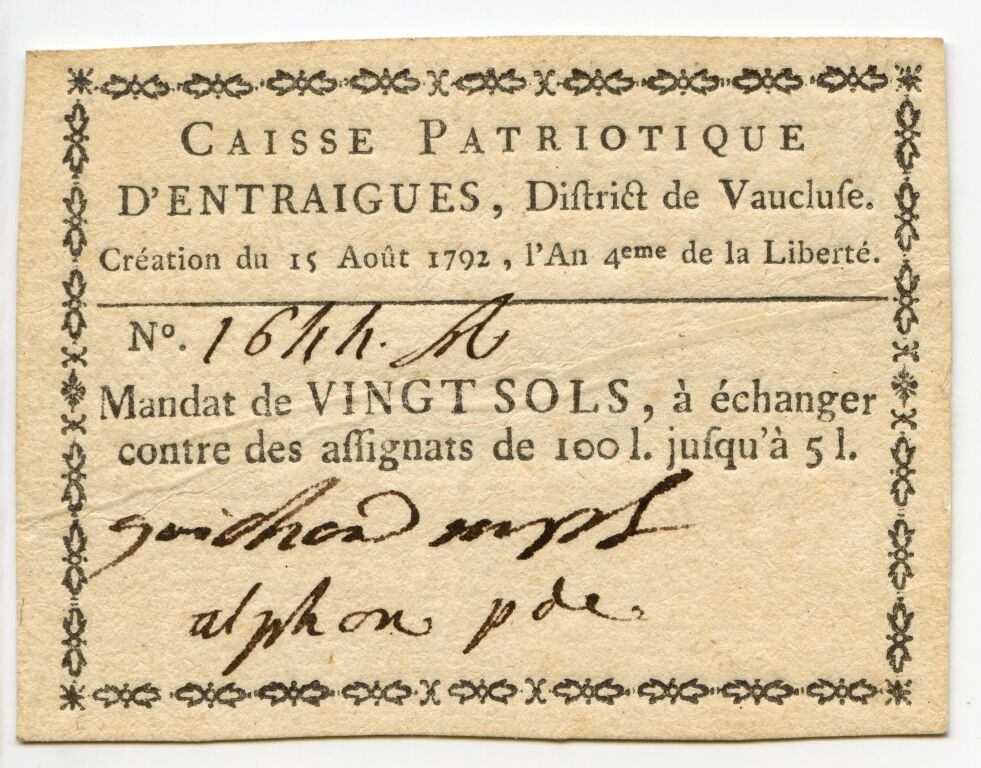 CAISSE PATRIOTIQUE
D'ENTRAIGUES, Diſtrict de Vaucluſe.
Création du 15 Août 1792, l'An 4eme de la Liberté.
Nº. 1644. A
Mandat de VINGT SOLS, à échanger
contre des aſſignats de 100 l. juſqu'à 5 l.
guichard
alphon pde